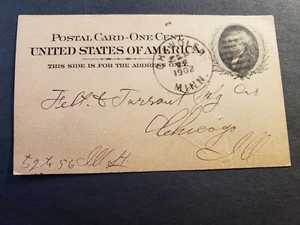 POSTAL CARD-ONE CENT.
UNITED STATES OF AMERICA.
THIS SIDE IS FOR THE ADDRESS
1902
MINN.
Felt & Tarrant Mfg Co
Chicago
Ill
52 to 56 Ill St.